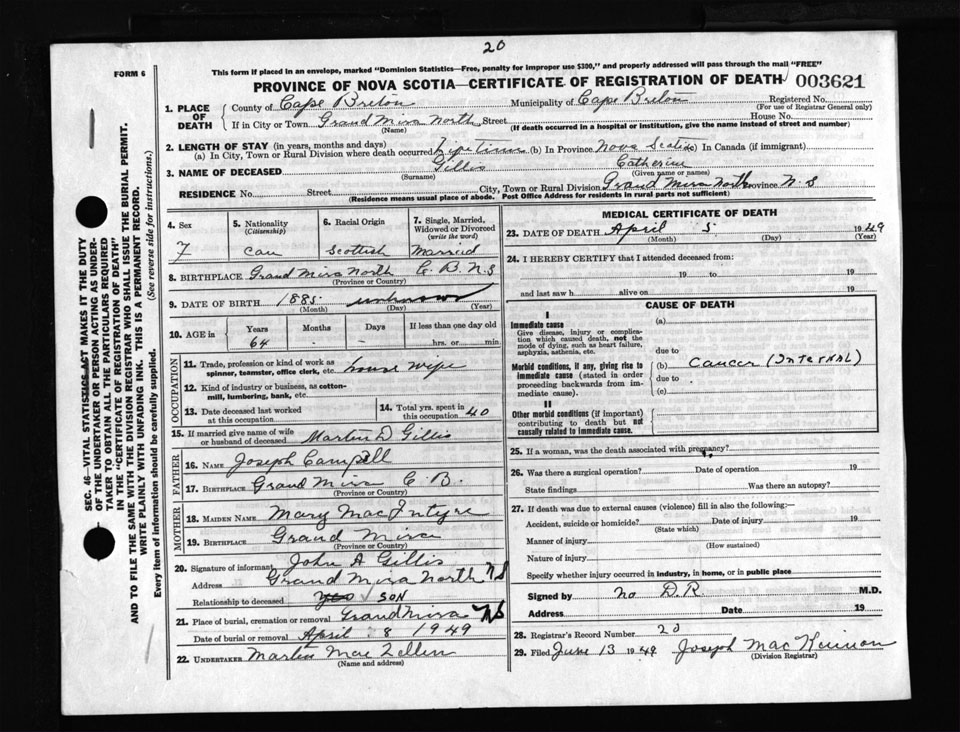 20
FORM 6
This form if placed in an envelope, marked "Dominion Statistics—Free, penalty for improper use $300," and properly addressed will pass through the mail "FREE"
PROVINCE OF NOVA SCOTIA—CERTIFICATE OF REGISTRATION OF DEATH 003621
SEC. 46—VITAL STATISTICS ACT MAKES IT THE DUTY
OF THE UNDERTAKER OR PERSON ACTING AS UNDER-
TAKER TO OBTAIN ALL THE PARTICULARS REQUIRED
IN THE "CERTIFICATE OF REGISTRATION OF DEATH"
AND TO FILE THE SAME WITH THE DIVISION REGISTRAR WHO SHALL ISSUE THE BURIAL PERMIT.
WRITE PLAINLY WITH UNFADING INK. THIS IS A PERMANENT RECORD.
Every item of information should be carefully supplied. (See reverse side for instructions.)
1. PLACE OF DEATH
County of Cape Breton Municipality of Cape Breton Registered No.
(For use of Registrar General only)
If in City or Town Grand Mira North Street House No.
(Name) (If death occurred in a hospital or institution, give the name instead of street and number)
2. LENGTH OF STAY (in years, months and days)
(a) In City, Town or Rural Division where death occurred Lifetime (b) In Province Nova Scotia (c) In Canada (if immigrant)
3. NAME OF DECEASED Gillis Catherine
(Surname) (Given name or names)
RESIDENCE No. Street City, Town or Rural Division Grand Mira North Province N S
(Residence means usual place of abode. Post Office Address for residents in rural parts not sufficient)
4. Sex 5. Nationality (Citizenship) 6. Racial Origin 7. Single, Married, Widowed or Divorced (write the word)
F Can Scottish Married
8. BIRTHPLACE Grand Mira North C. B. N. S
(Province or Country)
9. DATE OF BIRTH 1885 unknown
(Month) (Day) (Year)
10. AGE in Years Months Days If less than one day old
64 - - hrs. or min.
OCCUPATION
11. Trade, profession or kind of work as spinner, teamster, office clerk, etc. house wife
12. Kind of industry or business, as cotton-mill, lumbering, bank, etc.
13. Date deceased last worked at this occupation
14. Total yrs. spent in this occupation 40
15. If married give name of wife or husband of deceased Martin D Gillis
FATHER
16. NAME Joseph Campell
17. BIRTHPLACE Grand Mira C B.
(Province or Country)
MOTHER
18. MAIDEN NAME Mary MacIntyre
19. BIRTHPLACE Grand Mira
(Province or Country)
20. Signature of informant John A Gillis
Address Grand Mira North N S
Relationship to deceased son
21. Place of burial, cremation or removal Grand Mira NS
Date of burial or removal April 8 1949
22. UNDERTAKER Martin Mac
(Name and address)
MEDICAL CERTIFICATE OF DEATH
23. DATE OF DEATH April 5 1949
(Month) (Day) (Year)
24. I HEREBY CERTIFY that I attended deceased from:
19 to 19
and last saw h alive on 19
CAUSE OF DEATH
I
Immediate cause
Give disease, injury or complication which caused death, not the mode of dying, such as heart failure, asphyxia, asthenia, etc.
(a)
due to
Morbid conditions, if any, giving rise to immediate cause (stated in order proceeding backwards from immediate cause).
(b) Cancer (Internal)
due to
(c)
II
Other morbid conditions (if important) contributing to death but not causally related to immediate cause.
25. If a woman, was the death associated with pregnancy?
26. Was there a surgical operation? Date of operation 19
State findings Was there an autopsy?
27. If death was due to external causes (violence) fill in also the following:—
Accident, suicide or homicide? Date of injury 19
(State which)
Manner of injury
(How sustained)
Nature of injury
Specify whether injury occurred in industry, in home, or in public place
Signed by no D.R. M.D.
Address Date 19
28. Registrar's Record Number 20
29. Filed June 13 1949 Joseph MacKinnon
(Division Registrar)